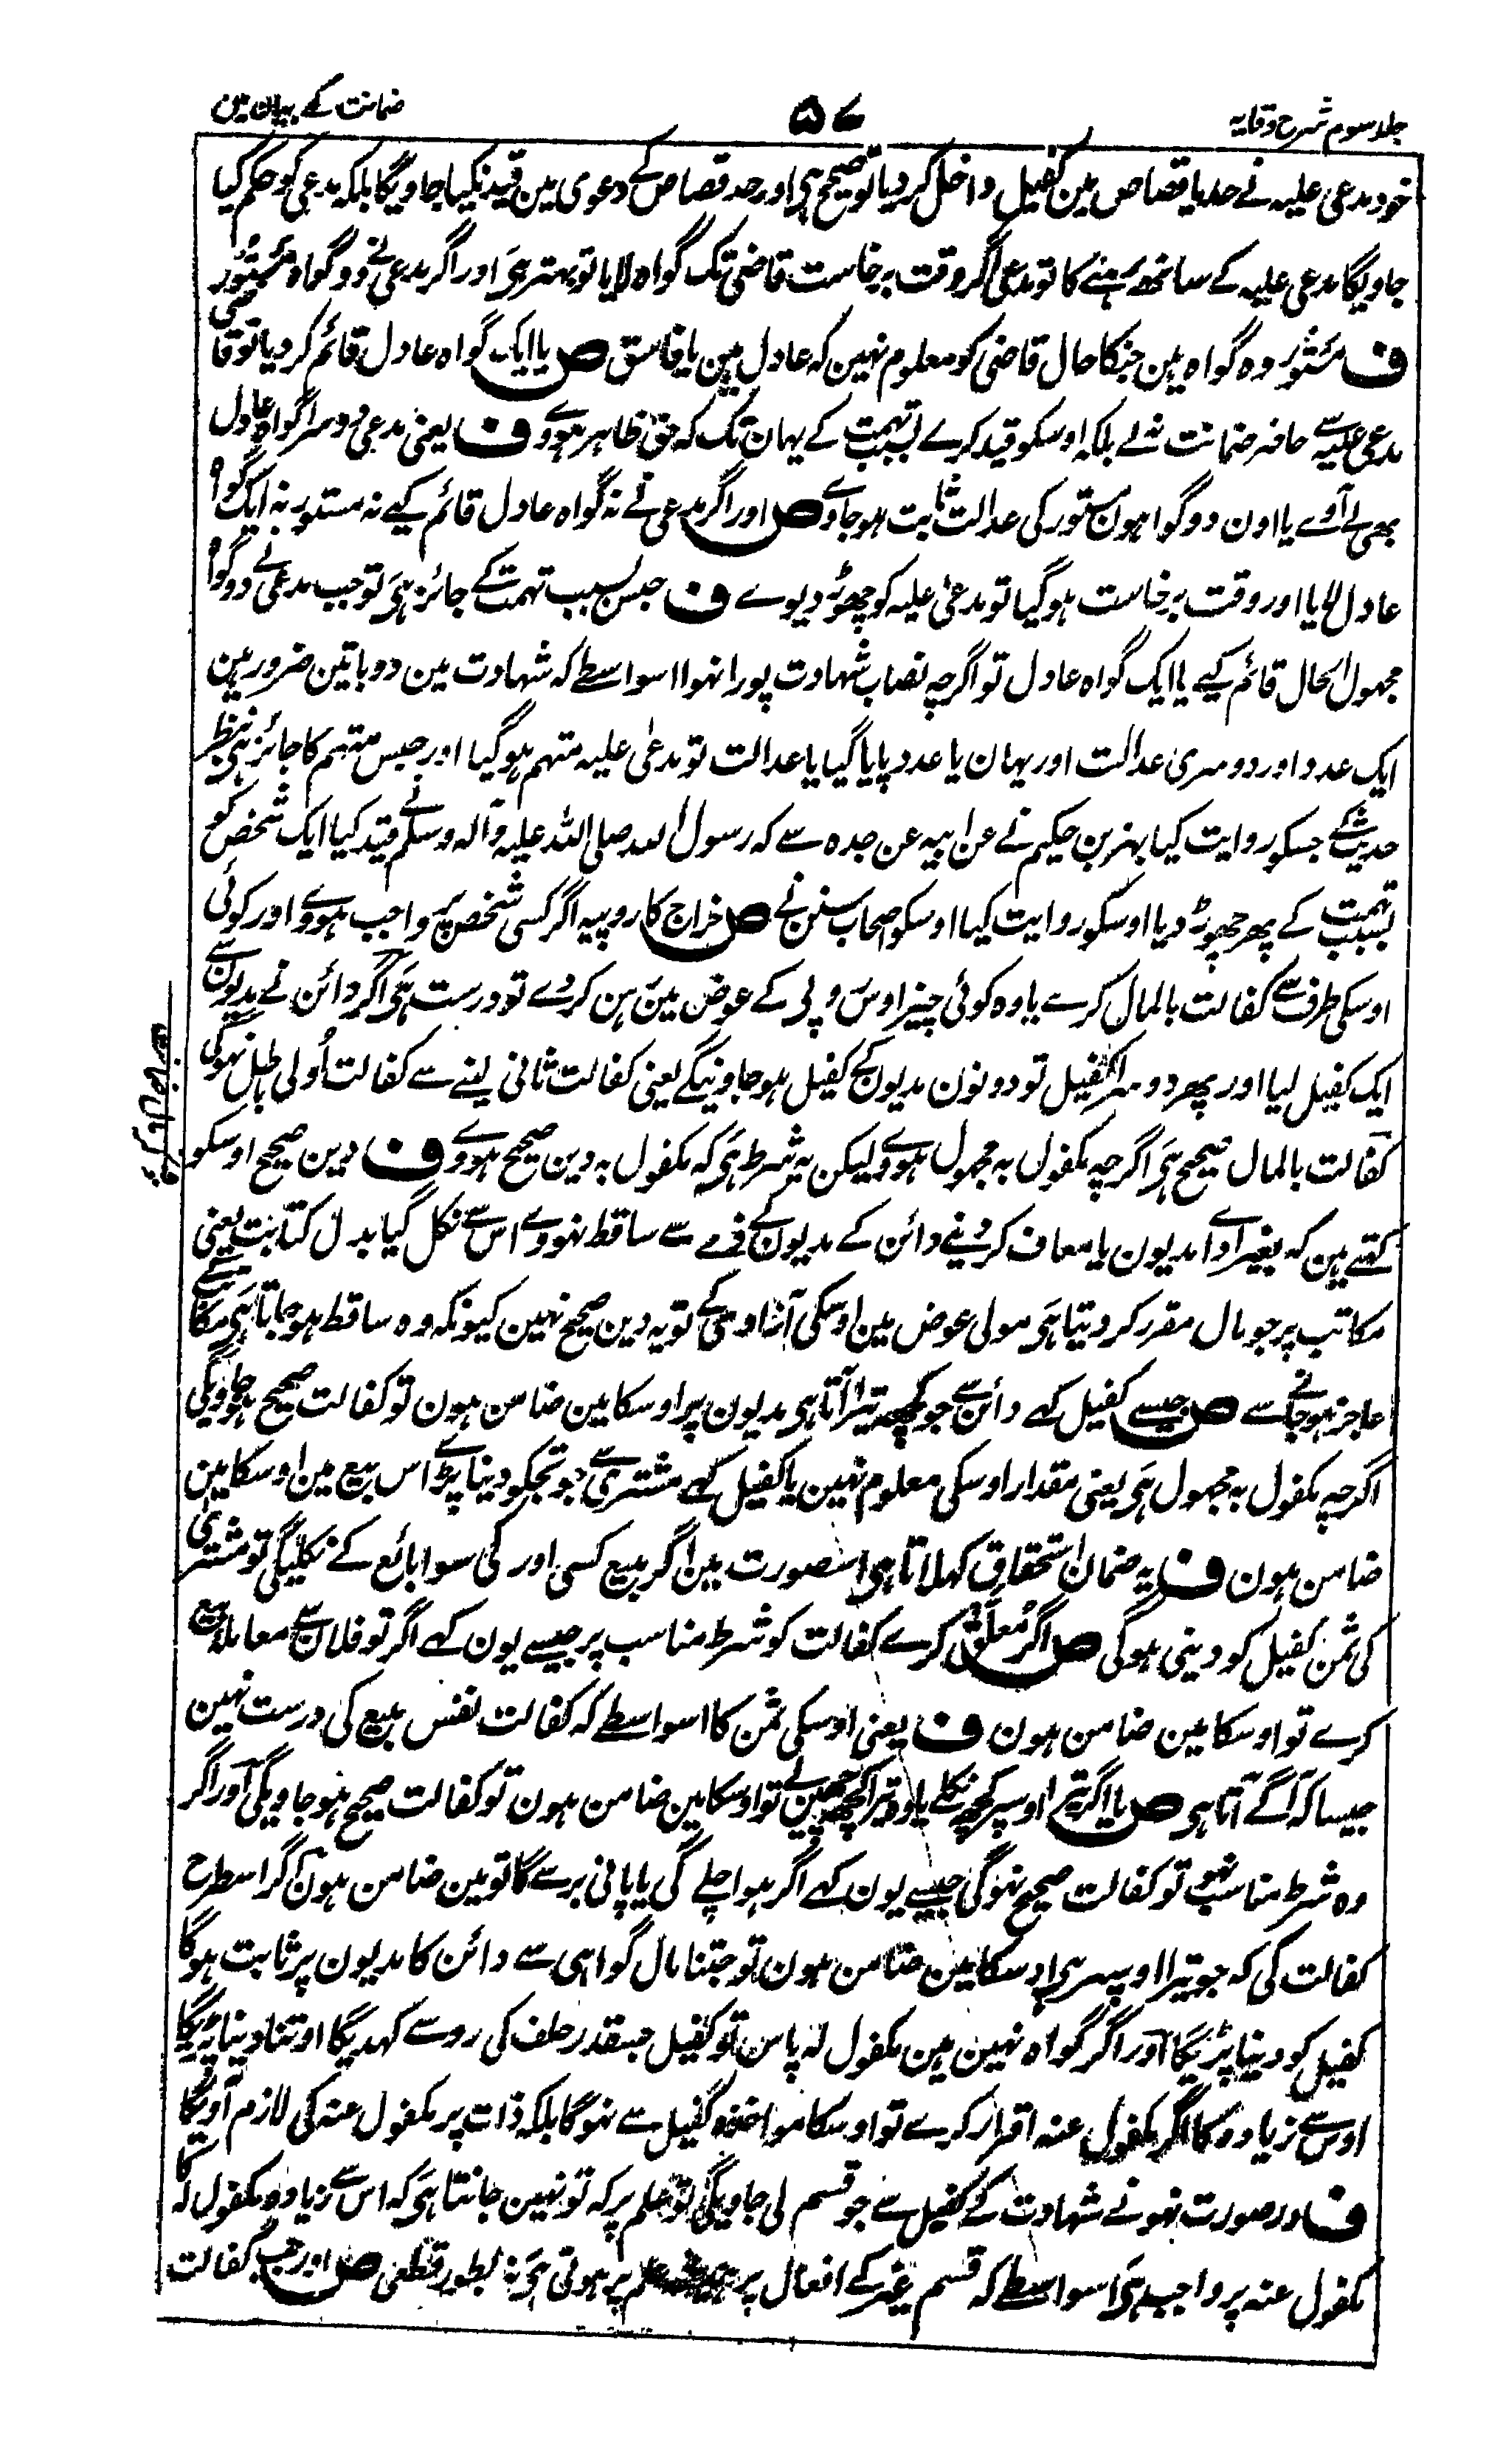 جلد سوم شرح وقایہ
۵۷
ضمانت کے بیان مین
خود مدعی علیہ نے حد یا قصاص مین کفیل داخل کر دیا تو صحیح ہی اور حد قصاص کے دعوی مین قید نکیا جاویگا بلکہ مدعی کو حکم کیا
جاویگا مدعی علیہ کے ساتھ رہنے کا تو مدعی اگر وقت برخاست قاضی تک گواہ لایا تو بہتر ہی اور اگر مدعی نے دو گواہ مستور
ف مستور وہ گواہ ہین جنکا حال قاضی کو معلوم نہین کہ عادل ہین یا فاسق ص یا ایک گواہ عادل قائم کر دیا تو قاضی
مدعی علیہ سے حاضر ضمانت نہ لے بلکہ اوسکو قید کرے بسبب تہمت کے یہان تک کہ حق ظاہر ہووے ف یعنی مدعی دوسرا گواہ عادل
بھی لے آوے یا اون دو گواہون مستور کی عدالت ثابت ہو جاوے ص اور اگر مدعی نے نہ گواہ عادل قائم کیے نہ مستور نہ ایک گواہ
عادل لایا اور وقت برخاست ہوگیا تو مدعی علیہ کو چھوڑ دیوے ف حبس بسبب تہمت کے جائز ہی تو جب مدعی نے دو گواہ
مجہول الحال قائم کیے یا ایک گواہ عادل تو اگرچہ نصاب شہادت پورا نہوا اسواسطے کہ شہادت مین دو باتین ضرور ہین
ایک عدد اور دوسری عدالت اور یہان یا عدد پایا گیا یا عدالت تو مدعی علیہ متہم ہوگیا اور حبس متہم کا جائز ہی بنظر
حدیث کے جسکو روایت کیا بہز بن حکیم نے عن ابیہ عن جدہ سے کہ رسول اللہ صلی اللہ علیہ وآلہ وسلم نے قید کیا ایک شخص کو
بسبب تہمت کے پھر چھوڑ دیا اوسکو روایت کیا اوسکو اصحاب سنن نے ص خراج کا روپیہ اگر کسی شخص پر واجب ہووے اور کوئی
اوسکی طرف سے کفالت بالمال کرے یا وہ کوئی چیز اوس روپی کے عوض مین رہن کر دے تو درست ہی اگر دائن نے مدیون سے
ایک کفیل لیا اور پھر دوسرا کفیل تو دونون مدیون کے کفیل ہو جاوینگے یعنی کفالت ثانی لینے سے کفالت اولی باطل نہوگی
کفالت بالمال صحیح ہی اگرچہ مکفول بہ مجہول ہووے لیکن یہ شرط ہی کہ مکفول بہ دین صحیح ہووے ف دین صحیح اوسکو
کہتے ہین کہ بغیر ادا مدیون یا معاف کر دینے دائن کے مدیون کے ذمے سے ساقط نہووے اس سے نکل گیا بدل کتابت یعنی
مکاتب پر جو مال مقرر کر دیتا ہی مولی عوض مین اوسکی آزادی کے تو یہ دین صحیح نہین کیونکہ وہ ساقط ہو جاتا ہی مکاتب کے
عاجز ہو جانے سے ص جیسے کفیل کہے دائن سے جو کچھ تیرا آتا ہی مدیون پر اوسکا مین ضامن ہون تو کفالت صحیح ہو جاویگی
اگرچہ مکفول بہ مجہول ہی یعنی مقدار اوسکی معلوم نہین یا کفیل کہے مشتری سے جو تجکو دینا پڑے اس بیع مین اوسکا مین
ضامن ہون ف یہ ضمان استحقاق کہلاتا ہی اسصورت مین اگر مبیع کسی اور کی سوا بائع کے نکلیگی تو مشتری
کی ثمن کفیل کو دینی ہوگی ص اگر معلق کرے کفالت کو شرط مناسب پر جیسے یون کہے اگر تو فلان سے معاملہ بیع
کرے تو اوسکا مین ضامن ہون ف یعنی اوسکی ثمن کا اسواسطے کہ کفالت نفس مبیع کی درست نہین
جیسا کہ آگے آتا ہی ص یا اگر تیرے اوسپر کچھ نکلے یا وہ تیرا کچھ چھین لے تو اوسکا مین ضامن ہون تو کفالت صحیح ہو جاویگی اور اگر
وہ شرط مناسب نہو تو کفالت صحیح نہوگی جیسے یون کہے اگر ہوا چلے گی یا پانی برسے گا تو مین ضامن ہون اگر اسطرح
کفالت کی کہ جو تیرا اوپر ہی اوسکا مین ضامن ہون تو جتنا مال گواہی سے دائن کا مدیون پر ثابت ہوگا
کفیل کو دینا پڑیگا اور اگر گواہ نہین ہین مکفول لہ پاس تو کفیل جسقدر حلف کی رو سے کہدیگا اوتنا دینا پڑیگا
اوس سے زیادہ کا اگر مکفول عنہ اقرار کرے تو اوسکا مواخذہ کفیل سے نہوگا بلکہ ذات پر مکفول عنہ کی لازم آویگا
ف در صورت نہونے شہادت کے کفیل سے جو قسم لی جاویگی تو علم پر کہ تو نہین جانتا ہی کہ اس سے زیادہ مکفول لہ کا
مکفول عنہ پر واجب ہی اسواسطے کہ قسم غیر کے افعال پر علم پر ہوتی ہی نہ بطور قطعی ص اور جب کفالت